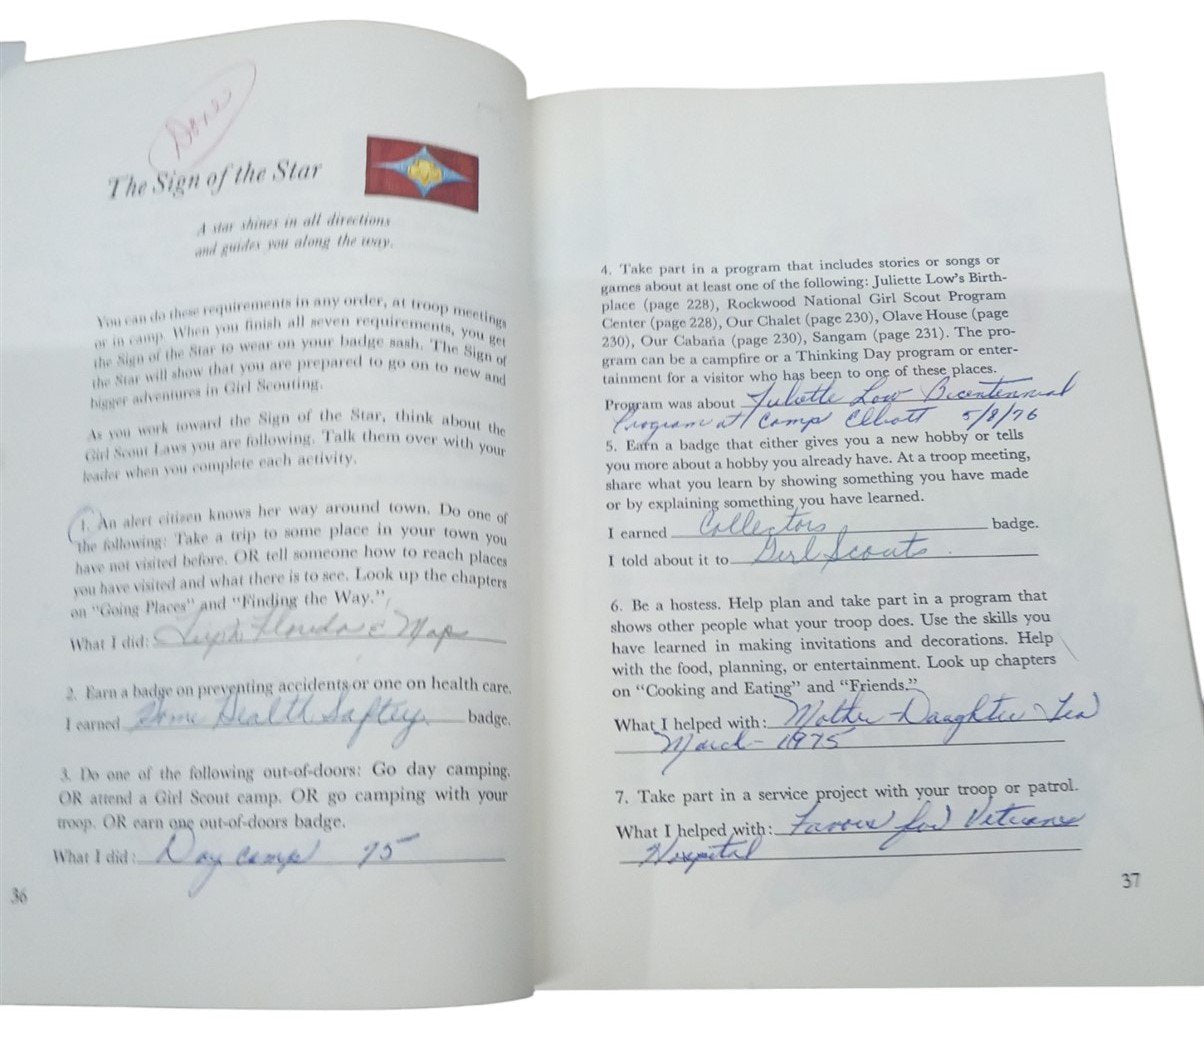 Done
The Sign of the Star
A star shines in all directions
and guides you along the way.
You can do these requirements in any order, at troop meetings
or in camp. When you finish all seven requirements, you get
the Sign of the Star to wear on your badge sash. The Sign of
the Star will show that you are prepared to go on to new and
bigger adventures in Girl Scouting.
As you work toward the Sign of the Star, think about the
Girl Scout Laws you are following. Talk them over with your
leader when you complete each activity.
1. An alert citizen knows her way around town. Do one of
the following: Take a trip to some place in your town you
have not visited before. OR tell someone how to reach places
you have visited and what there is to see. Look up the chapters
on “Going Places” and “Finding the Way.”
What I did: Florida & Map
2. Earn a badge on preventing accidents or one on health care.
I earned Home Health Saftey badge.
3. Do one of the following out-of-doors: Go day camping.
OR attend a Girl Scout camp. OR go camping with your
troop. OR earn one out-of-doors badge.
What I did: Day camp 75
36
4. Take part in a program that includes stories or songs or
games about at least one of the following: Juliette Low's Birth-
place (page 228), Rockwood National Girl Scout Program
Center (page 228), Our Chalet (page 230), Olave House (page
230), Our Cabaña (page 230), Sangam (page 231). The pro-
gram can be a campfire or a Thinking Day program or enter-
tainment for a visitor who has been to one of these places.
Program was about Juliette Low Bicentennial
Program at Camp Elliott 5/8/76
5. Earn a badge that either gives you a new hobby or tells
you more about a hobby you already have. At a troop meeting,
share what you learn by showing something you have made
or by explaining something you have learned.
I earned Collectors badge.
I told about it to Girl Scouts.
6. Be a hostess. Help plan and take part in a program that
shows other people what your troop does. Use the skills you
have learned in making invitations and decorations. Help
with the food, planning, or entertainment. Look up chapters
on “Cooking and Eating” and “Friends.”
What I helped with: Mother-Daughter Tea
March - 1975
7. Take part in a service project with your troop or patrol.
What I helped with: Favors for Veterans
Hospital
37